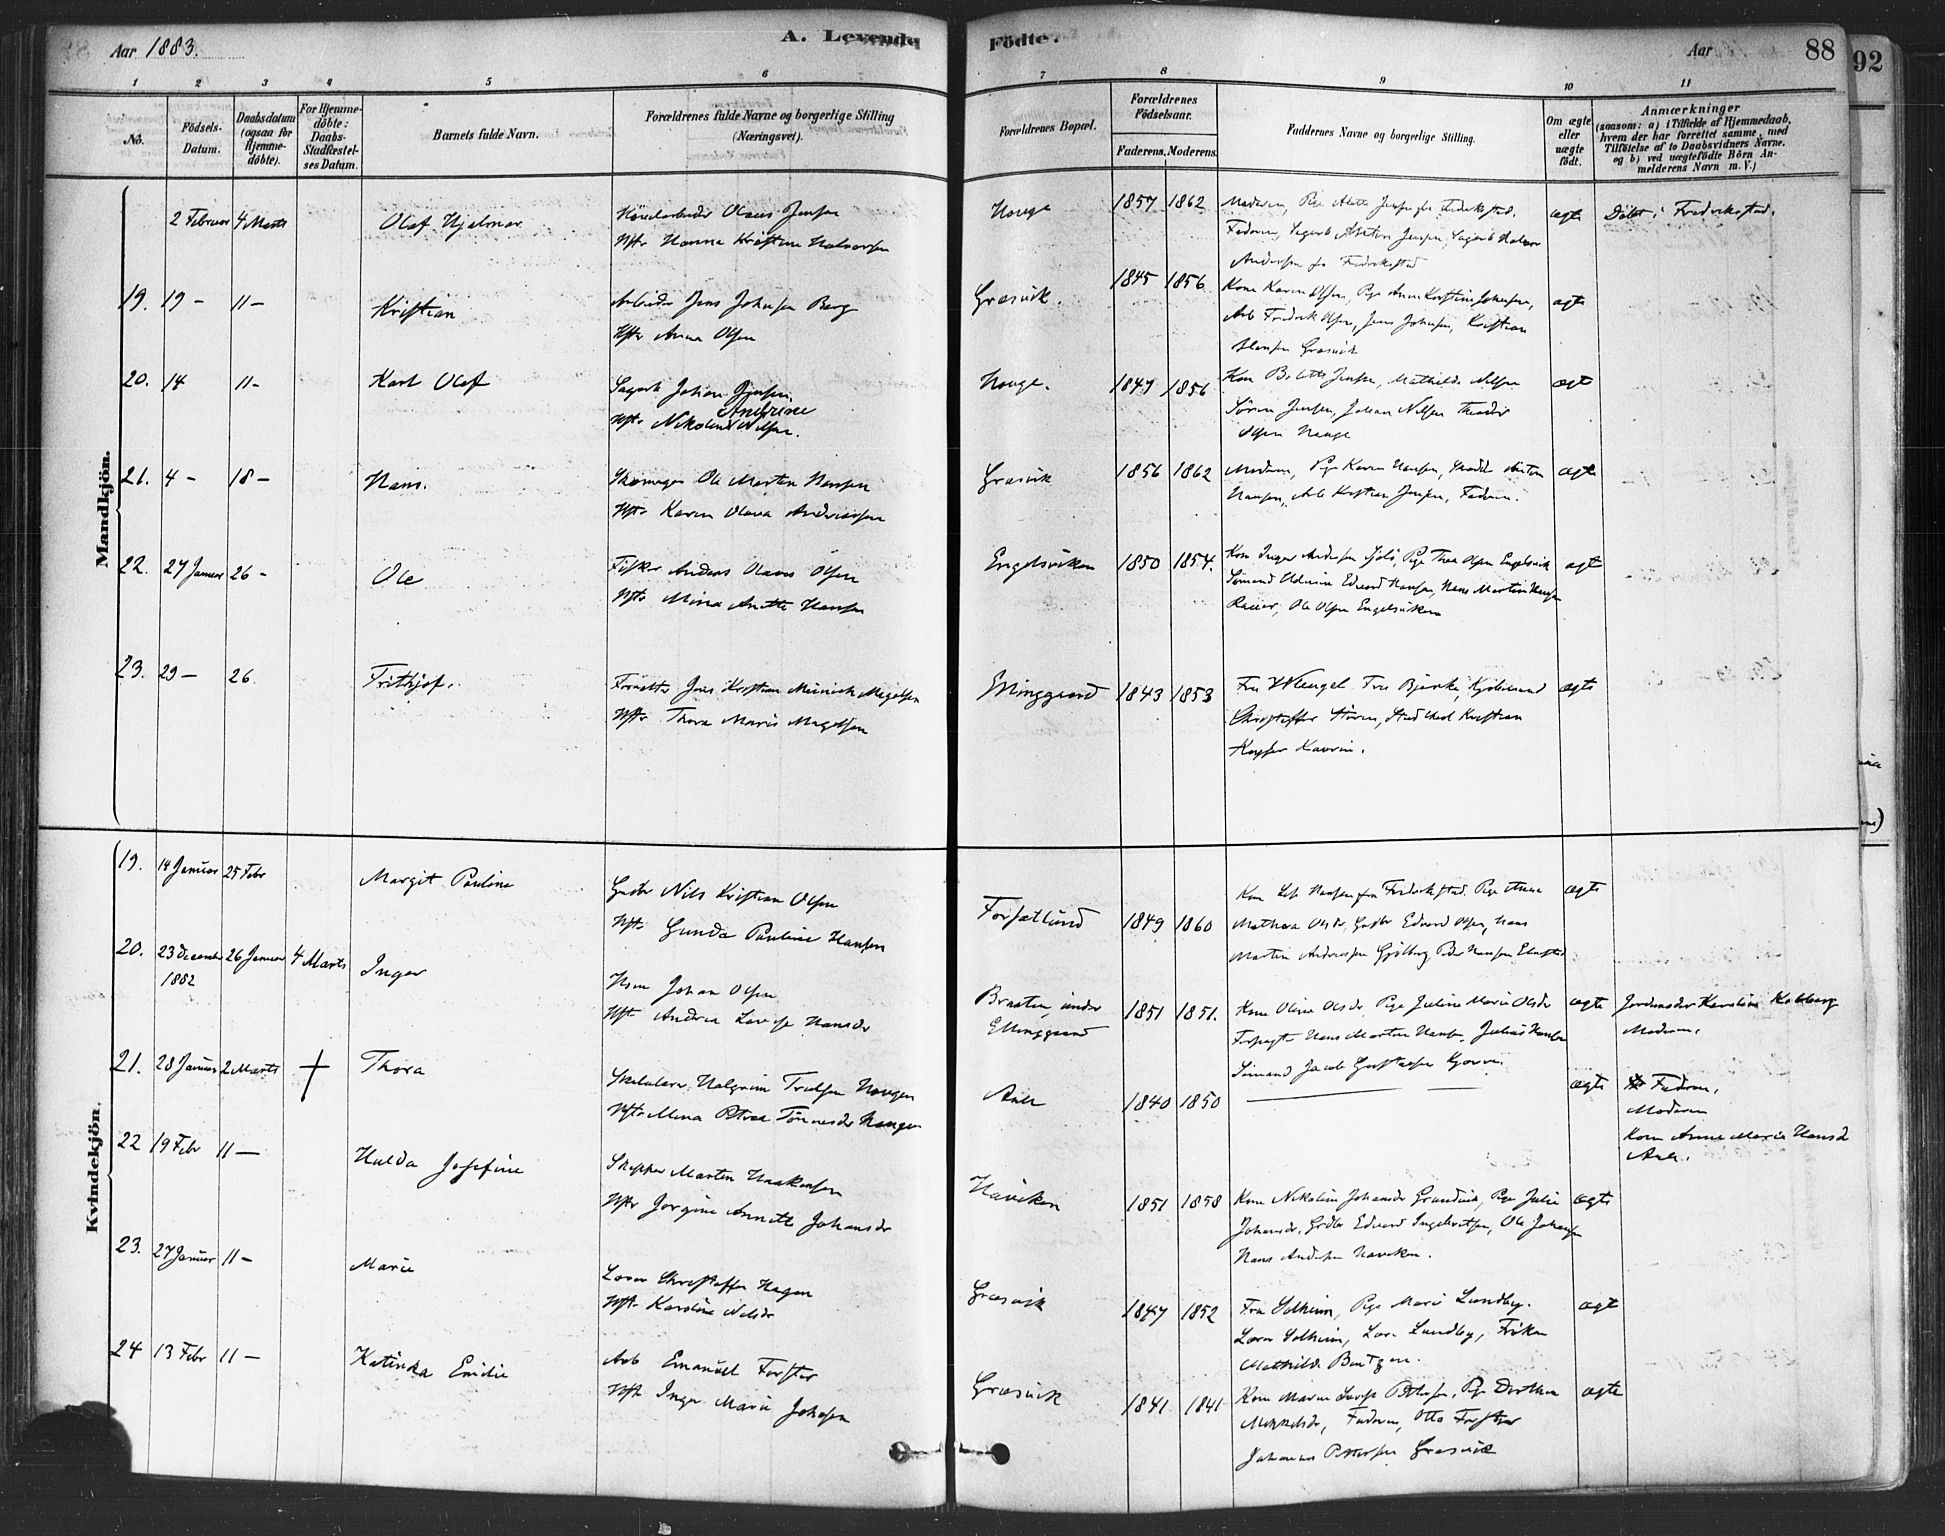 Aar 1883.
A. Levende Födte.
Aar
88
92
1 2 3 4 5 6 7 8 9 10 11
No.
Födsels-Datum.
Daabsdatum (ogsaa for Hjemme-döbte).
For Hjemme-döbte: Daabs-Stadfæstel-ses Datum.
Barnets fulde Navn.
Forældrenes fulde Navne og borgerlige Stilling (Næringsvei).
Forældrenes Bopæl.
Forældrenes Födselsaar.
Faderens. Moderens.
Faddernes Navne og borgerlige Stilling.
Om ægte eller uægte födt.
Anmærkninger
(saasom: a) i Tilfælde af Hjemmedaab, hvem der har forrettet samme, med Tilföielse af to Daabsvidners Navne, og b) ved uægtefödte Börn An-melderens Navn m. V.)
Mandkjön.
2 Februar 4 Marts Olaf Hjalmar
Olaus Jensen
Hstr Hanna Kristine Halvorsen
Houge 1857 1862
Moderen, Pige
Faderen,
Andersen fra Fredrikstad
ægte Döbt i Fredrikstad.
19. 19 - 11 - Kristian
Arbeider Jens Johnsen Berg
Hstr Anna Olsen
Græsvik. 1845 1856
Kone Karen Olsen, Pige Anne Kristine Johnsen,
Arb Fredrik Olsen, Jens Johnsen, Kristian
Hansen Græsvik
ægte
20. 14 11 - Karl Olaf
Sagarb Johan Jensen.
Hstr Nikoline Andrine Nilsen.
Houge. 1847 1856
Jensen, Mathilde Nilsen
Sören Jensen, Johan Nilsen Theodor
Olsen Houge
ægt
21. 4 - 18 - Hans.
Skomager Ole Martin Hansen
Hstr Karen Olava Andreassen
Græsvik 1856 1862
Moderen, Pige Karen Hansen, Anton
Hansen, Arb Kristian Jensen, Faderen.
ægte
22. 27 Januar 26 - Ole
Fisker Anders Olaus Olsen
Hstr Mina Anette Hansen
Engelsviken 1850 1854.
Kone Inger Andersen Pige Thea Olsen Engelsvik
Sömand Edvard Hansen, Hans Martin Hansen
Rauer, Ole Olsen Engelsviken
ægt
23. 29 - 26. Frithjof.
Jens Kristian Meinich Magelsen
Hstr Thora Marie Magelsen
Elinggaard 1843 1853
Fru Klengel Fru Bjerke, Kjöbmand
Christoffer Stören, Stud Med Kristian
Kaurin.
ægte
Kvindekjön.
19. 14 Januar 25 Febr Margit Pauline
Gaardbr Nils Kristian Olsen
Hstr Gunda Pauline Hansen
Forsætlund 1849 1860
Kone Hansen fra Fredrikstad. Pige Anna
Mathea Olsdr, Gaardbr Edvard Olsen, Hans
Martin Andreassen Gjölberg, Peder Hansen
ægte
20. 23 December 1882 26 Januar 4 Marts Inger
Hsm Johan Olsen
Hstr Andrea Lovise Hansdr
Braaten, under Elinggaard 1851 1851.
Kone Oline Olsdr, Pige Juline Marie Olsdr
Hans Martin Hansen, Julius Hansen
Sömand Jacob Gustavsen
ægte Jordemoder Karoline
Moderen.
21. 28 Januar 2 Marts + Thora
Halgrim Haugen
Hstr Mina Petrea Tönnesdr Haugen
Aale 1840 1850
ægte Faderen,
Moderen
Kone Anne Marie Hansdr
Aale.
22 19 Febr 11 - Hulda Josefine
Skipper Martin Haakensen
Hstr Jörgine Annette Johansdr
Haviken 1851 1858
Kone Nikoline Johansdr Grandvik, Pige Julie
Johansdr, Gaardbr Edvard Ingebretsen, Ole Johansen
Hans Andersen Haviken.
ægte
23. 27 Januar 11 - Marie
Lærer Christoffer Hagen
Hstr Karoline Nilsdr
Græsvik 1847 1852
Fru Solheim, Pige Marie Lundby.
Lærer Solheim, Lærer Lundby, Fröken
Mathilde Bentzen.
ægt
24 13 Febr 11 - Katinka Emilie
Arb Emanuel Forster
Hstr Inger Marie Johnsen
Græsvik 1841 1841
Kone Maren Lovise Pettersen, Pige Dorthea
Mikkelsdr, Faderen, Otto Forster
Johannes Pettersen Græsvik
ægte